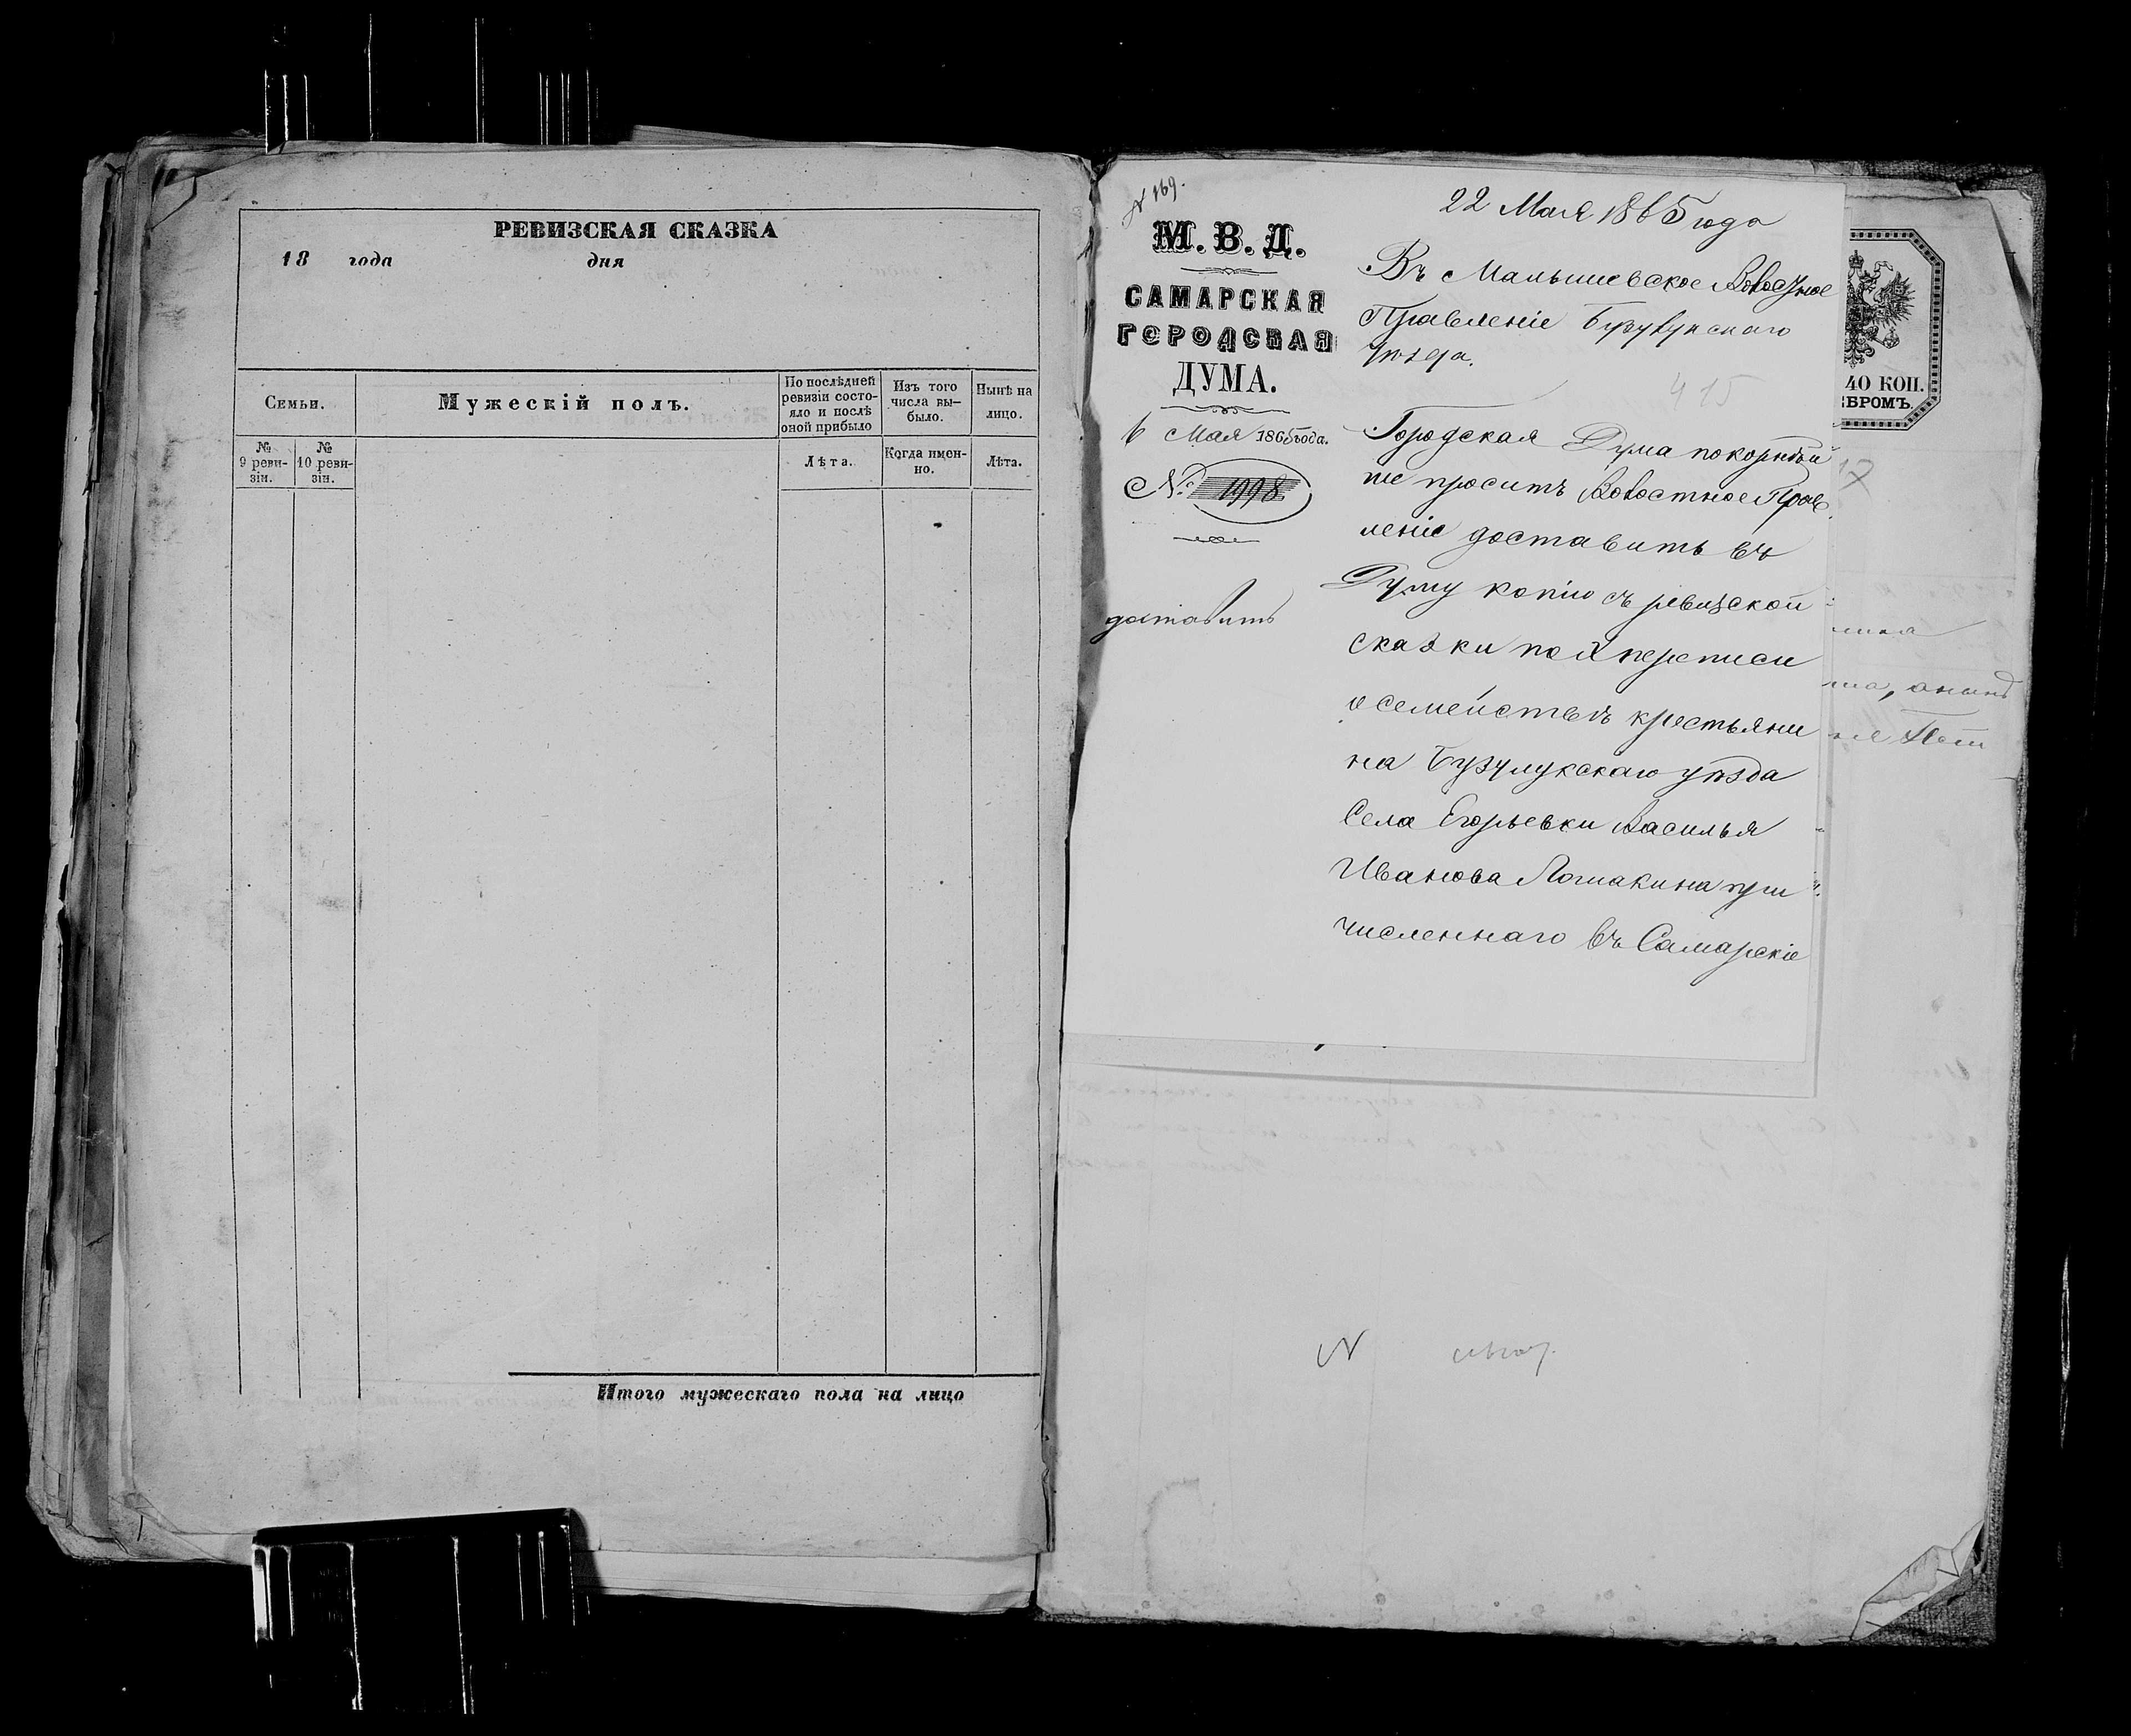 РЕВИЗСКАЯ СКАЗКА
18 года дня
Семьи.
Мужескій полъ.
По послѣдней
ревизіи состо-
яло и послѣ
оной прибыло
Изъ того
числа вы-
было.
Нынѣ на
лицо.
№
9 реви-
зіи.
№
10 реви-
зіи.
Лѣта.
Когда имен-
но.
Лѣта.
Итого мужескаго пола на лицо
№ 169.
М. В. Д.
САМАРСКАЯ
ГОРОДСКАЯ
ДУМА.
6 Мая 1865 года.
№ 1998
доставить
22 Мая 1865 года
Въ Малышевское Волостное
Правленіе Бузулукскаго
уѣзда.
415
Городская Дума покорнѣй
ше проситъ Волостное Прав
леніе доставить въ
Думу копію съ ревизской
сказки по X переписи
о семействѣ крестьяни
на Бузулукскаго уѣзда
Села Егорьевки Василья
Иванова Ломакина при
численнаго въ Самарскіе
40 КОП.
БРОМЪ.
17
№